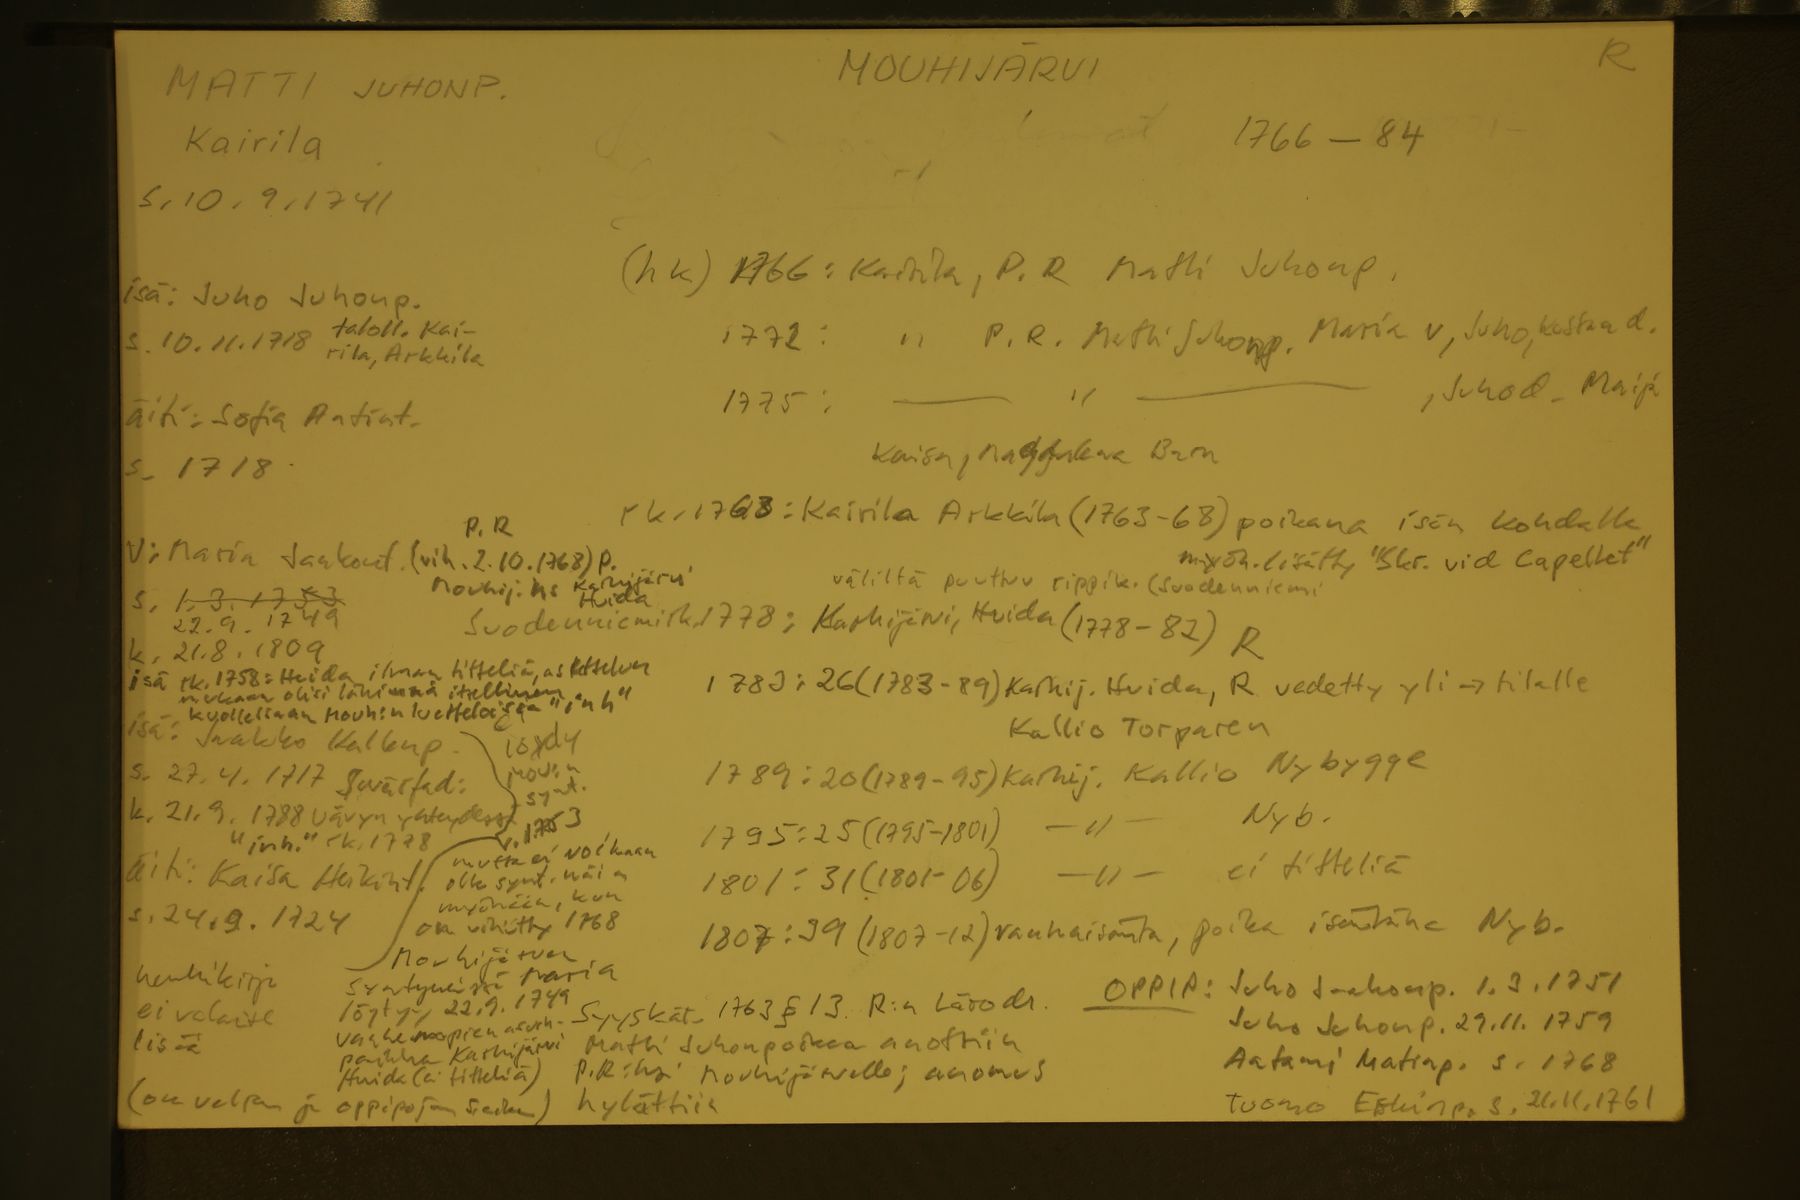 MATTI JUHONP.
MOUHIJÄRVI
R
Kairila
1766 - 84
s. 10.9.1741
(hk) 1766: Kairila, P.R Matti Juhonp.
isä: Juho Juhonp.
s. 10.11.1718 taloll. Kai-
rila, Arkkila
1772: " P.R. Matti Juhonp. Maria v, Juho, Kustaa d.
1775: — " — , Juho d. Maija
Kaisa, Magdalena Barn
äiti: Sofia Antint.
s. 1718
rk. 1763: Kairila Arkkila (1763-68) poikana isän kohdalla
myöh. lisätty "Skr. vid Capellet"
väliltä puuttuu rippik. (Suodenniemi
P.R
v: Maria Jaakont. (vih. 2.10.1768) P.
Mouhij. ns Karhijärvi
Huida
s. 1.3.1753
22.9.1749
k. 21.8.1809
Suodenniemi rk. 1778: Karhijärvi, Huida (1778-82) R
isä rk. 1758: Huida ilman titteliä, asettelun
mukaan olisi lähinnä itsellinen
kuollessaan Mouh:n luetteloissa "inh"
1783: 26 (1783-89) Karhij. Huida, R vedetty yli → tilalle
Kallio Torparen
isä: Jaakko Kallenp.
s. 27.4.1717
k. 21.9.1788 vävyn yhteydessä
"inh." rk. 1778
äiti: Kaisa Heikint.
s. 24.9.1724
löydy
Mouh:n
synt.
v. 1753
mutta ei voikaan
olla synt. näin
myöhään, kun
on vihitty 1768
Mouhijärven
syntyneissä Maria
löytyy 22.9.1749
vanhempien asuin-
paikka Karhijärvi
Huida (ei titteliä)
1789: 20 (1789-95) Karhij. Kallio Nybygge
1795: 25 (1795-1801) — " — Nyb.
1801: 31 (1801-06) — " — ei titteliä
1807: 39 (1807-12) vanhaisäntä, poika isäntänä Nyb.
henkikirja
ei valaise
lisää
(on veljen ja oppipojan )
Syyskär. 1763 § 13. R:n Lärodr.
Matti Juhonpoikaa anottiin
P.R:ksi Mouhijärvelle; anomus
hylättiin
OPPIP: Juho Jaakonp. 1.3.1751
Juho Juhonp. 29.11.1759
Aatami Matinp. s. 1768
Tuomo Eskinp. s. 21.11.1761